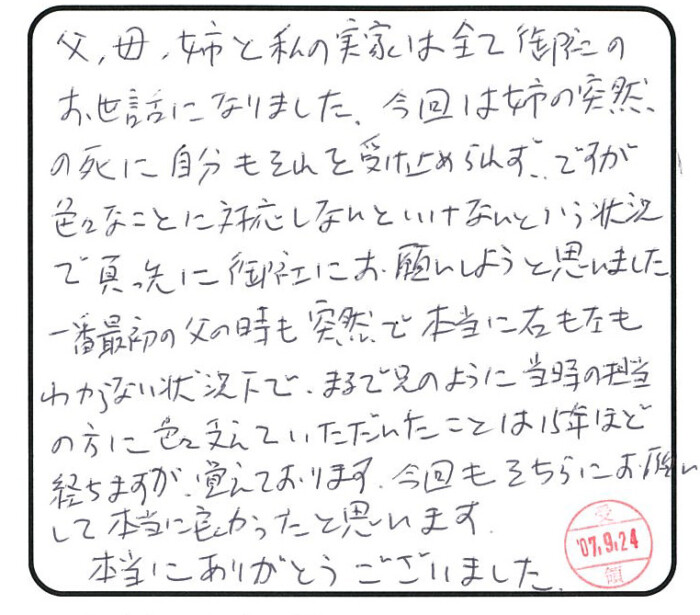 父、母、姉と私の実家は全て御社の
お世話になりました。今回は姉の突然
の死に自分もそれを受け止められず、ですが
色々なことに対応しないといけないという状況
で真っ先に御社にお願いしようと思いました
一番最初の父の時も突然で本当に右も左も
わからない状況下で、まるで兄のように当時の担当
の方に色々支えていただいたことは15年ほど
経ちますが、覚えております。今回もそちらにお願い
して本当に良かったと思います。
本当にありがとうございました。
受
'07.9.24
領